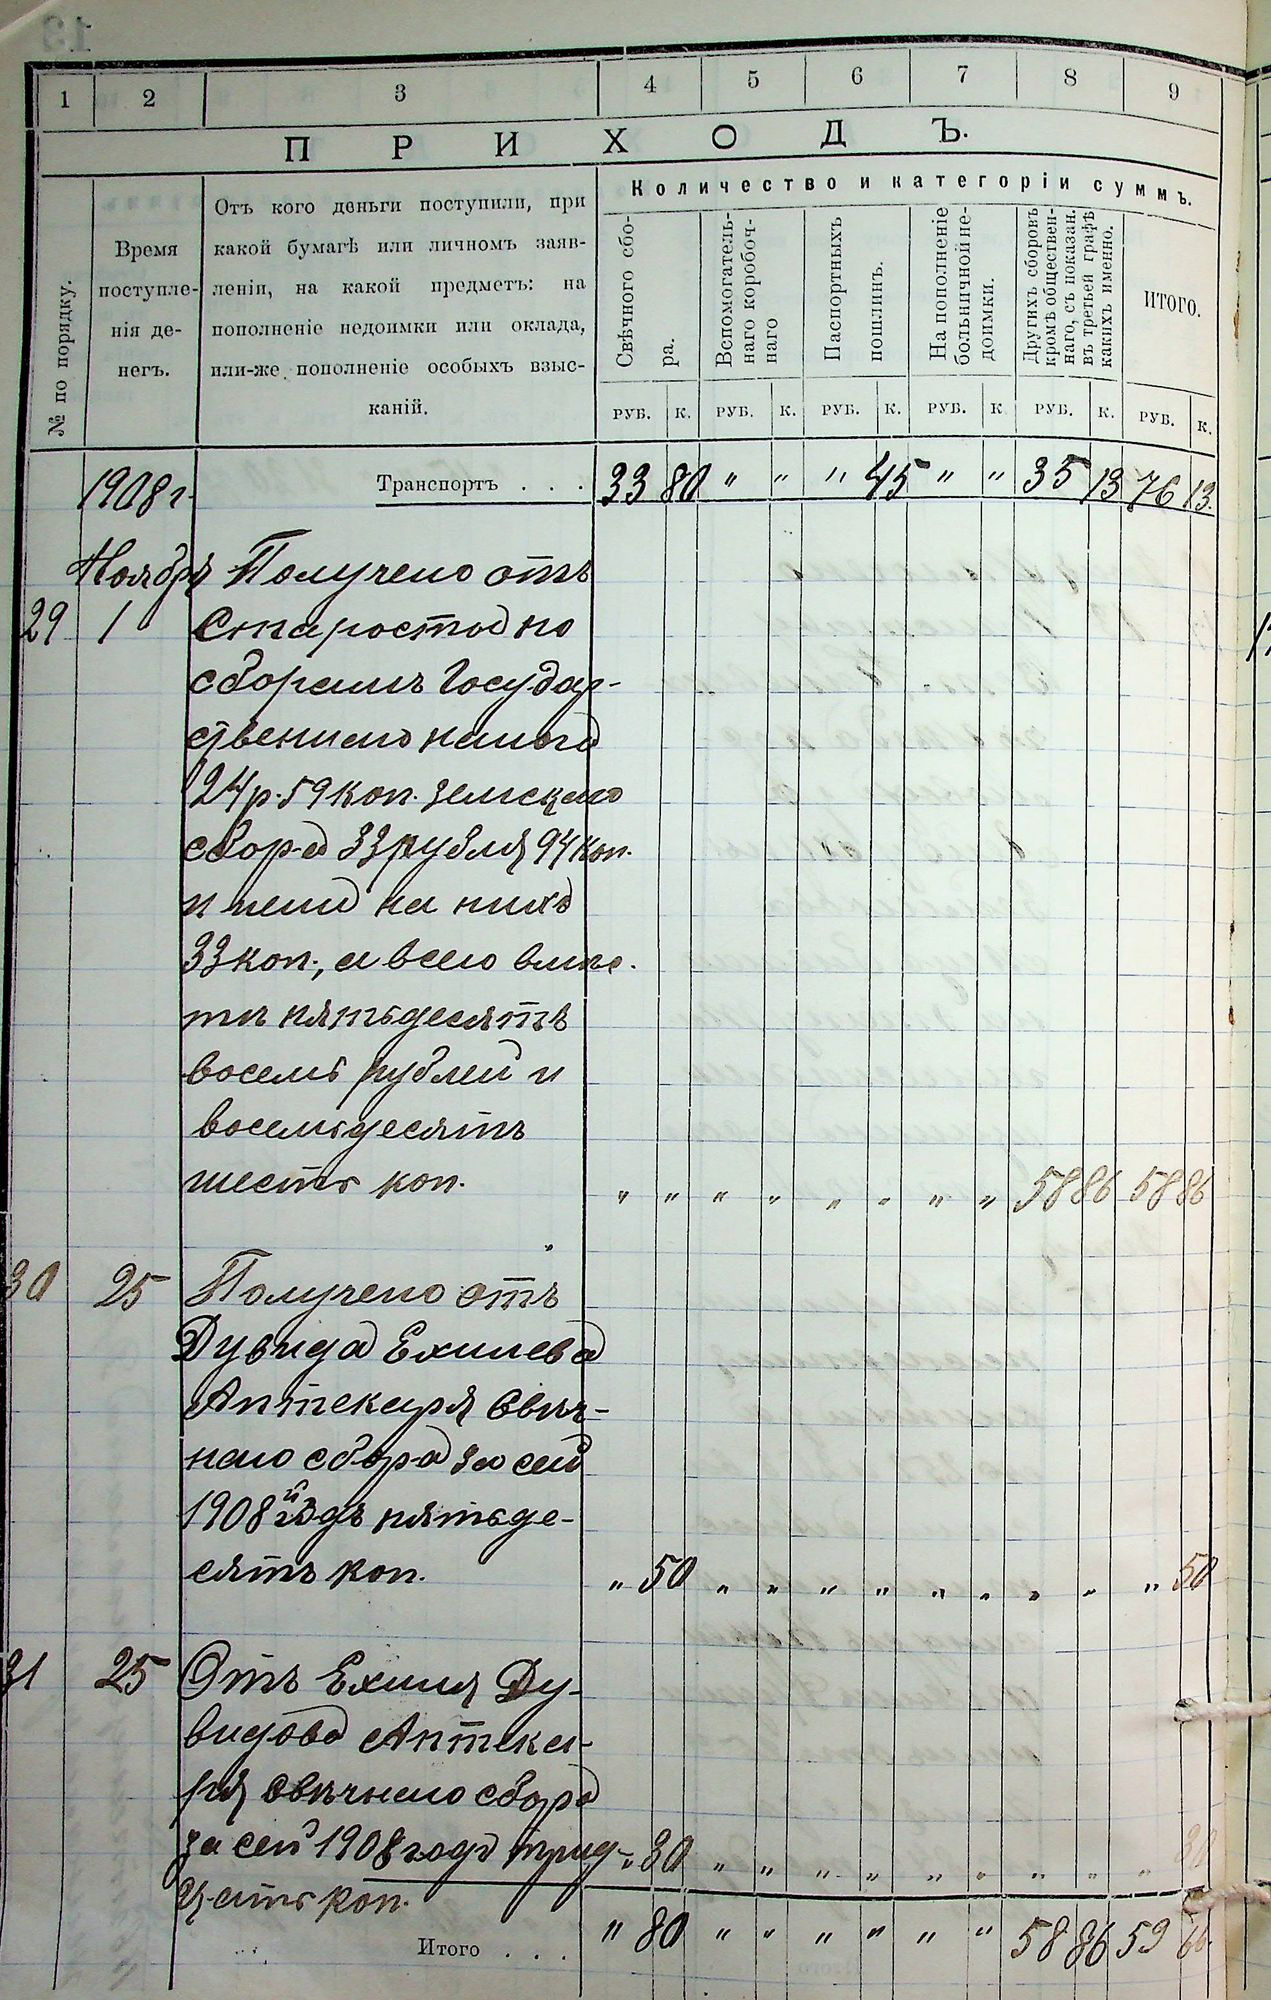 1 2 3 4 5 6 7 8 9
ПРИХОДЪ.
№ по порядку.
Время
поступле-
нія де-
негъ.
Отъ кого деньги поступили, при
какой бумагѣ или личномъ заяв-
леніи, на какой предметъ: на
пополненіе недоимки или оклада,
или-же пополненіе особыхъ взыс-
каній.
Количество и категоріи суммъ.
Свѣчного сбо-
ра.
Вспомогатель-
наго коробоч-
наго
Паспортныхъ
пошлинъ.
На пополненіе
больничной не-
доимки.
Другихъ сборовъ
кромѣ обществен-
наго, съ показан.
въ третьей графѣ
какихъ именно.
ИТОГО.
РУБ. К. РУБ. К. РУБ. К. РУБ. К РУБ. К. РУБ. К.
1908 г. Транспортъ . . . 33 80 " " " 45 " " 35 13 76 13.
Ноября Получено отъ
29 1 Старосты по
сборамъ Государ-
ственнаго налога
24 р. 59 коп. земскаго
сбора 33 рубля 94 коп.
и пени на нихъ
33 коп., а всего вмѣс-
тѣ пятьдесятъ
восемь рублей и
восемьдесятъ
шесть коп. " " " " " " " " 58 86 58 86
30 25 Получено отъ
Дувида Ехилева
Аптекаря свѣч-
наго сбора за сей
1908й годъ пятьде-
сятъ коп. " 50 " " " " " " " " " 50
31 25 Отъ Ехиля Ду-
видова Аптека-
ря свѣчнаго сбора
за сей 1908 годъ трид- " 30 " " " " " " " " " 30
цать коп.
Итого . . . " 80 " " " " " " 58 86 59 66.